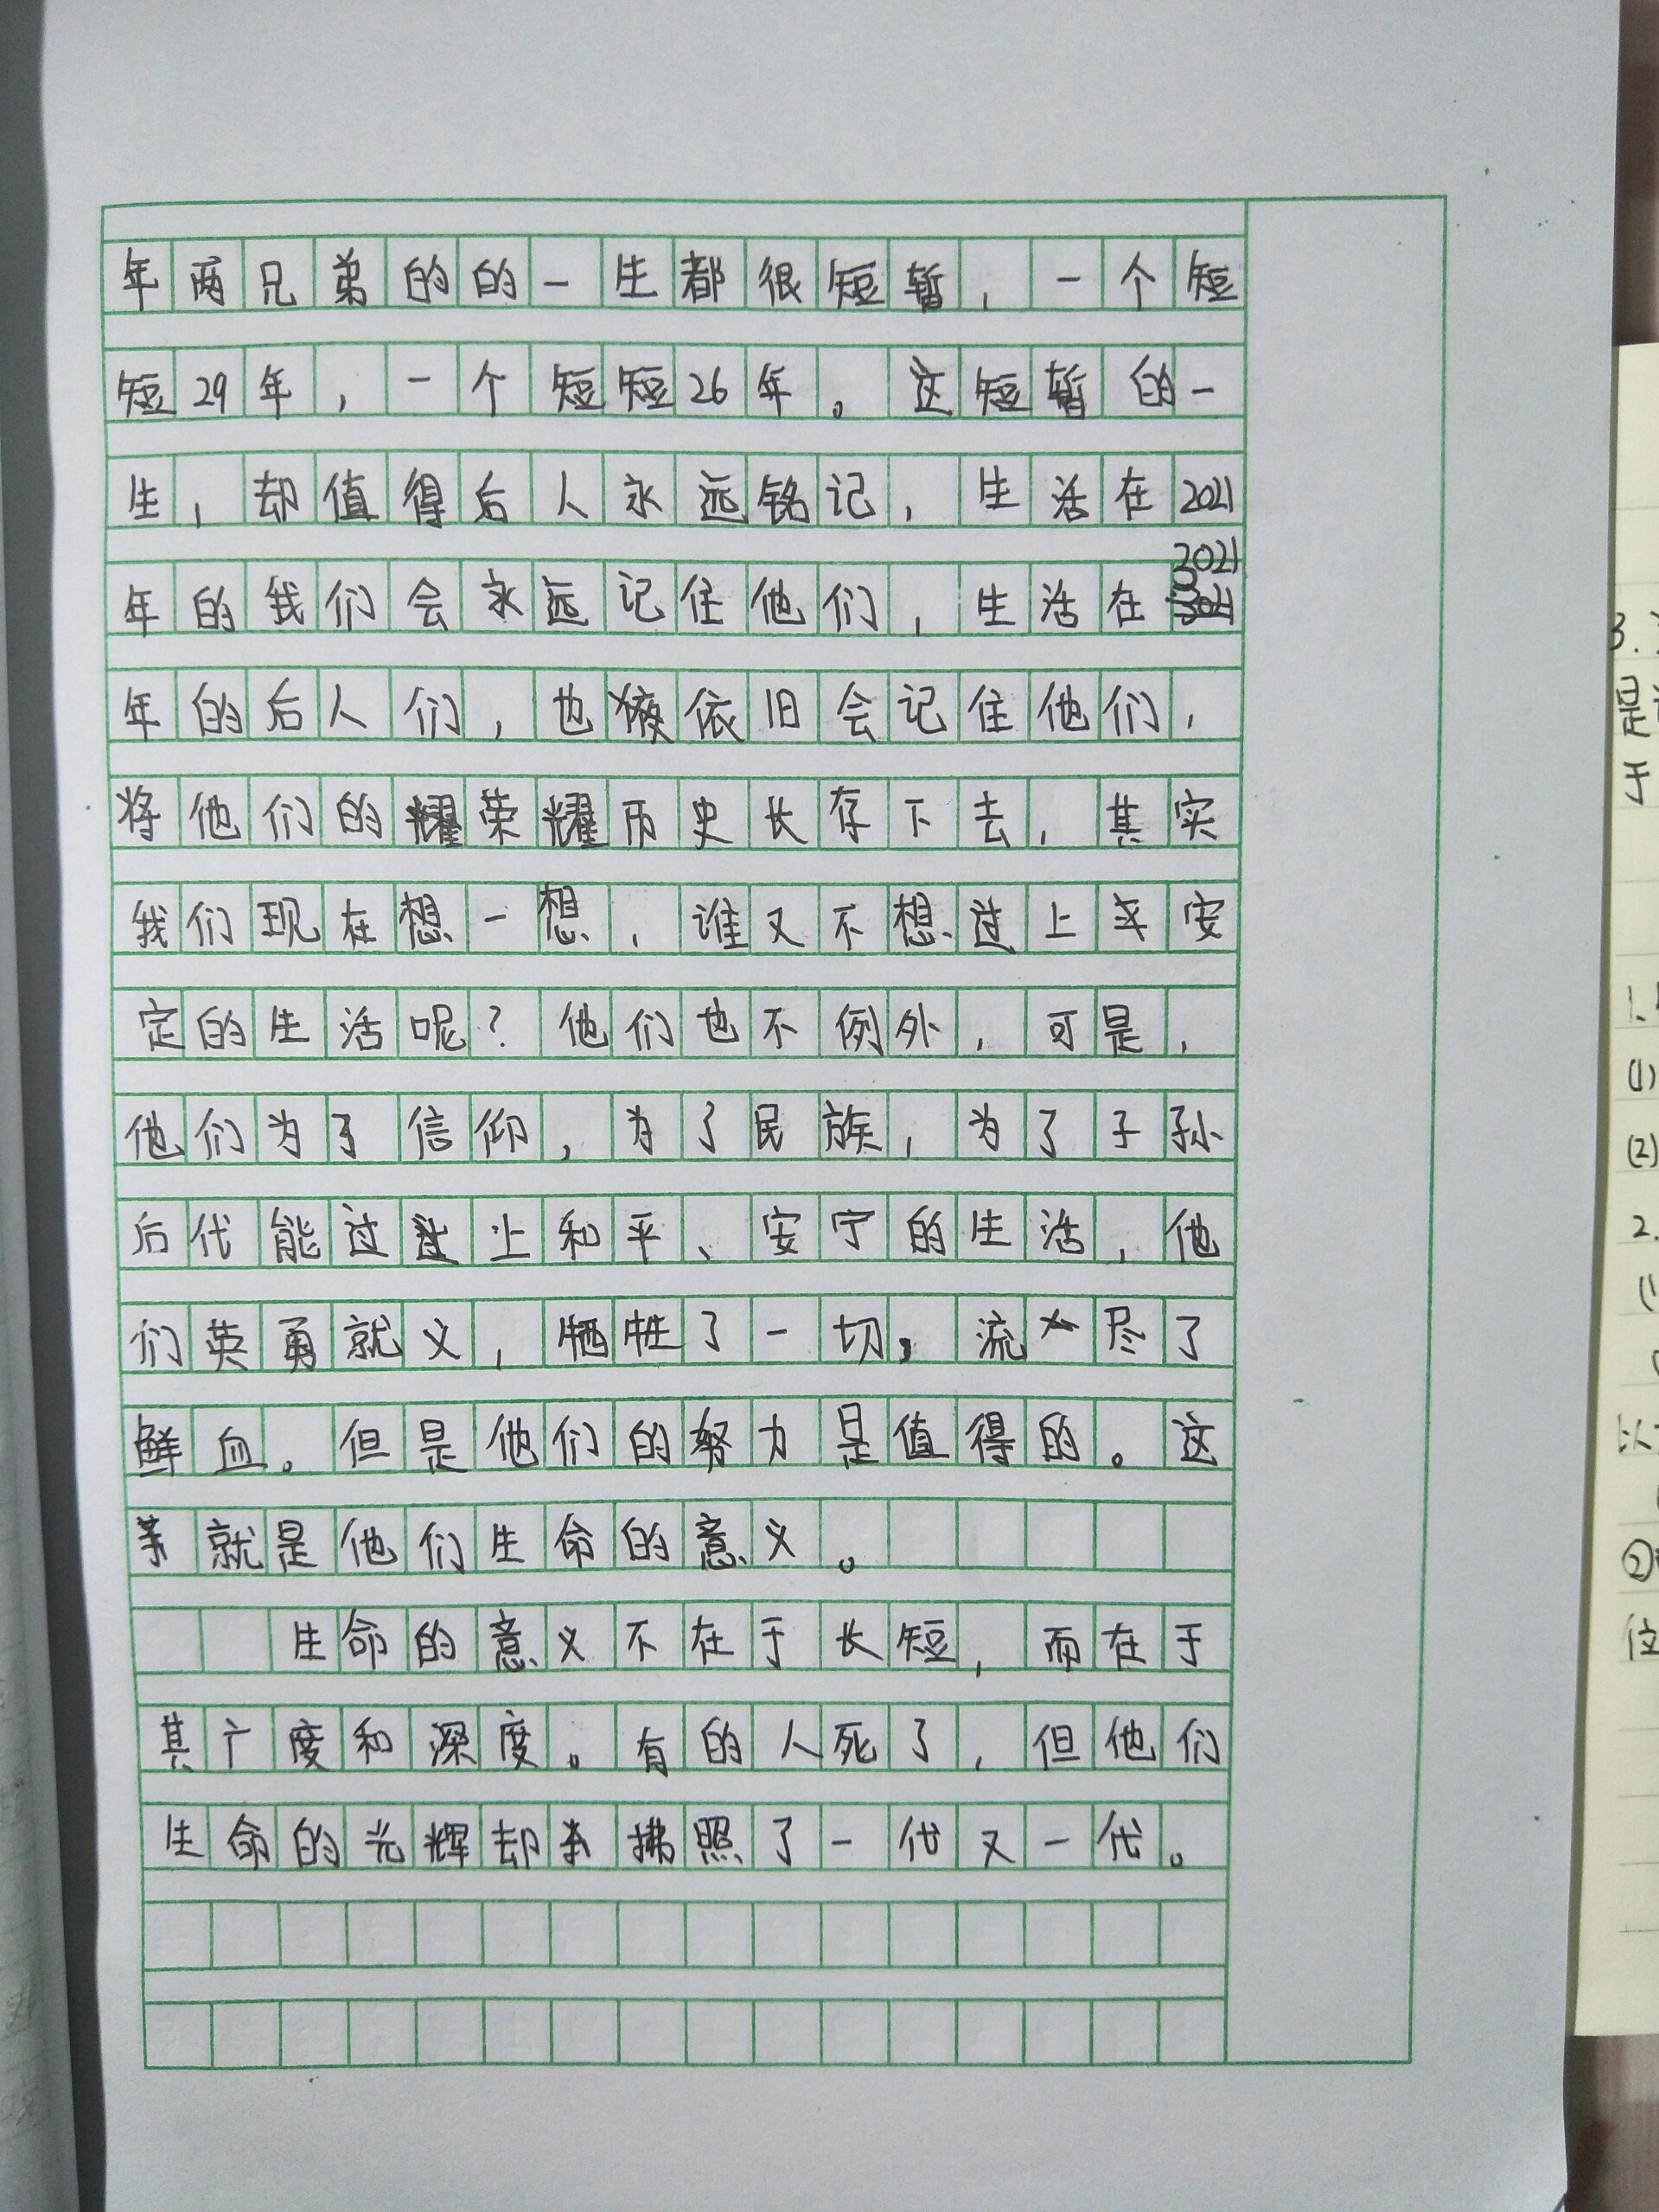 年两兄弟的的一生都很短暂，一个短
短29年，一个短短26年。这短暂的一
生，却值得后人永远铭记，生活在2021
2021
年的我们会永远记住他们，生活在
年的后人们，也依旧会记住他们，
将他们的耀荣耀历史长存下去，其实
我们现在想一想，谁又不想过上平安
定的生活呢？他们也不例外，可是，
他们为了信仰，为了民族，为了子孙
后代能过上和平、安宁的生活，他
们英勇就义，牺牲了一切，流尽了
鲜血。但是他们的努力是值得的。这
就是他们生命的意义。
生命的意义不在于长短，而在于
其广度和深度。有的人死了，但他们
生命的光辉却拂照了一代又一代。
3.
是
于
1.
(1)
(2)
2.
(1
以
②
位